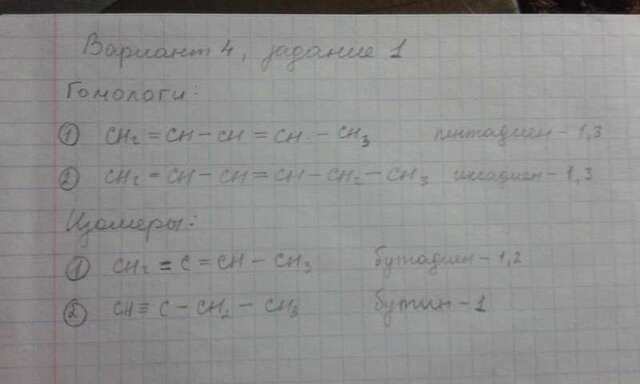 Вариант 4, задание 1
Гомологи:
① CH₂=CH-CH=CH-CH₃ пентадиен-1,3
② CH₂=CH-CH=CH-CH₂-CH₃ гексадиен-1,3
Изомеры:
① CH₂=C=CH-CH₃ бутадиен-1,2
② CH≡C-CH₂-CH₃ бутин-1